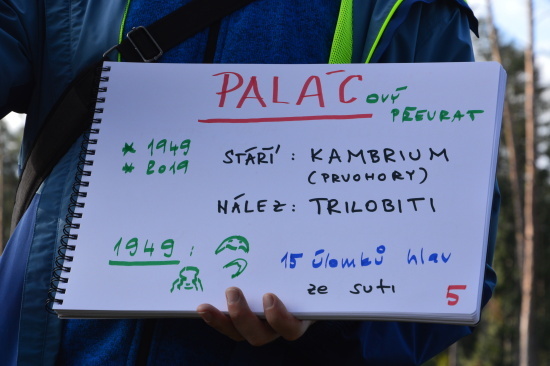 PALÁC OVÝ
PŘEVRAT
* 1949
* 2019
STÁŘÍ : KAMBRIUM
(PRVOHORY)
NÁLEZ : TRILOBITI
1949 :
15 úlomků hlav
ze suti
5